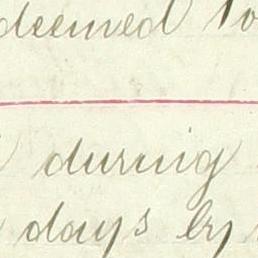 deemed to
during
days by